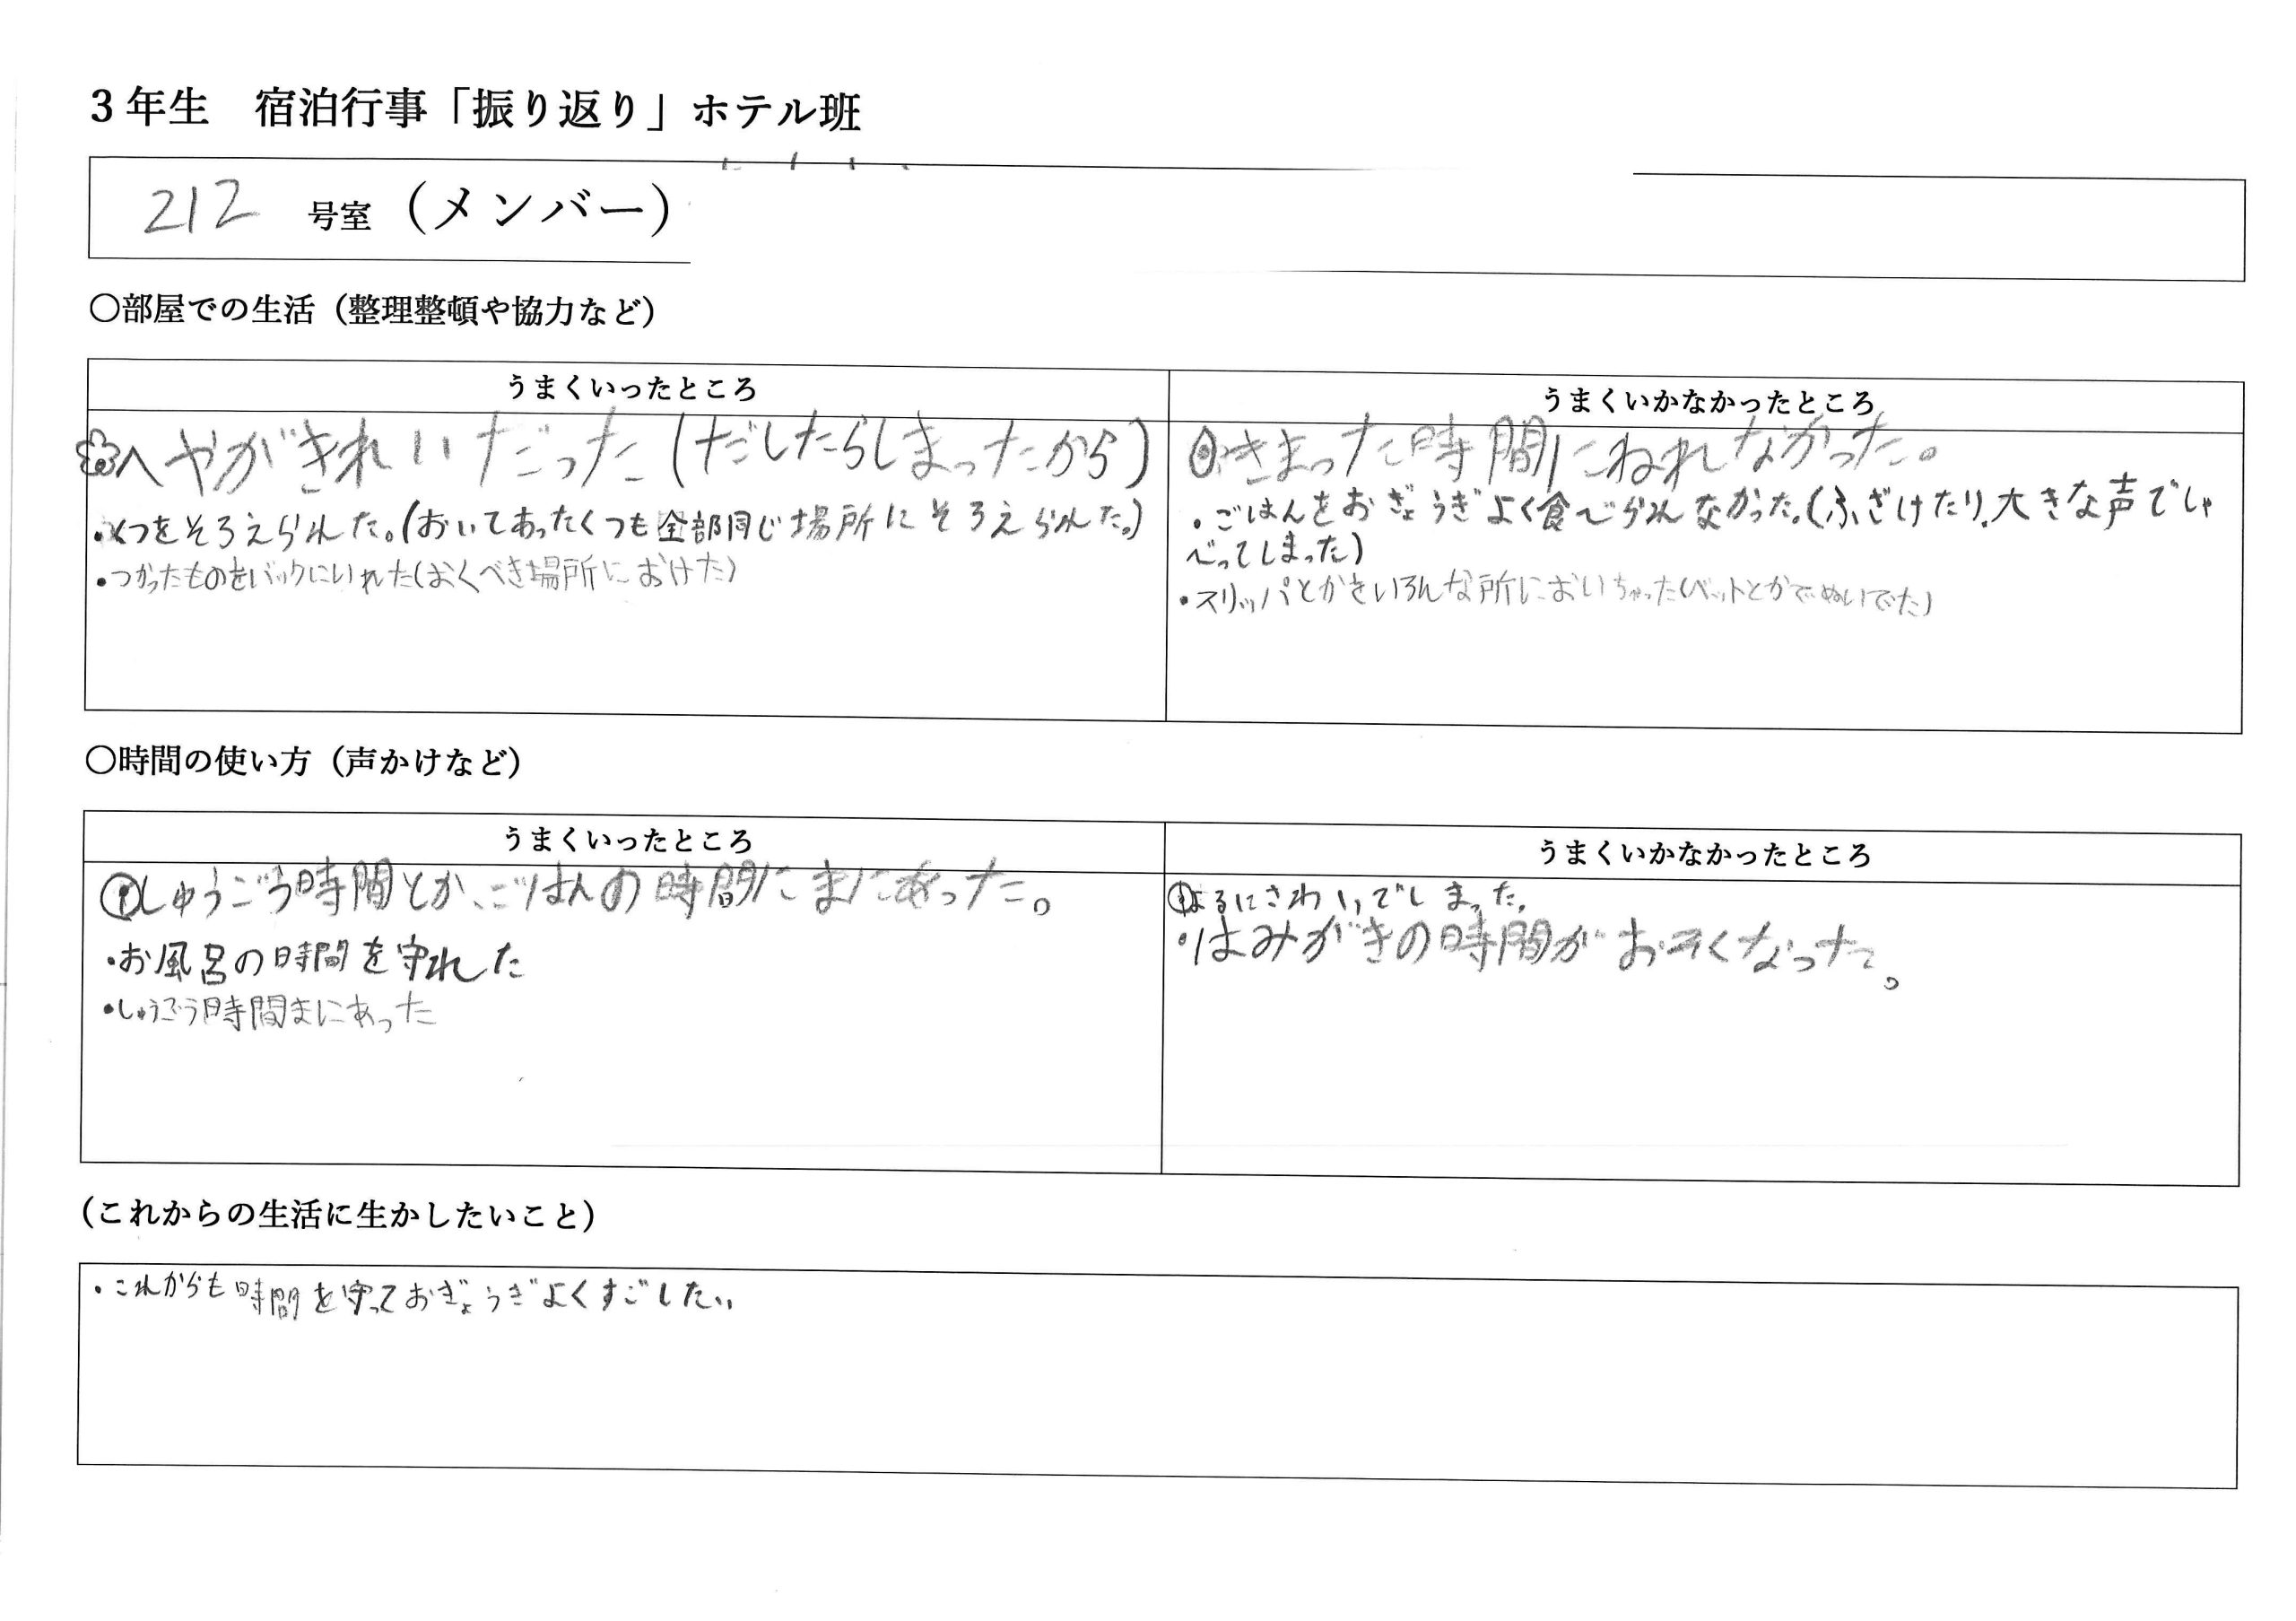 3年生　宿泊行事「振り返り」ホテル班
212 号室（メンバー）
〇部屋での生活（整理整頓や協力など）
うまくいったところ
へやがきれいだった(だしたらしまったから)
・くつをそろえられた。(おいてあったくつも全部同じ場所にそろえられた。)
・つかったものをバックにいれた(おくべき場所におけた)
うまくいかなかったところ
きまった時間にねれなかった。
・ごはんをおぎょうぎよく食べられなかった。(ふざけたり、大きな声でしゃ
べってしまった)
・スリッパとかをいろんな所においちゃった(ベットとかでぬいでた)
〇時間の使い方（声かけなど）
うまくいったところ
しゅうごう時間とか、ごはんの時間にまにあった。
・お風呂の時間を守れた
・しゅうごう時間まにあった
うまくいかなかったところ
よるにさわいでしまった。
・はみがきの時間がおそくなった。
（これからの生活に生かしたいこと）
・これからも時間を守っておぎょうぎよくすごしたい